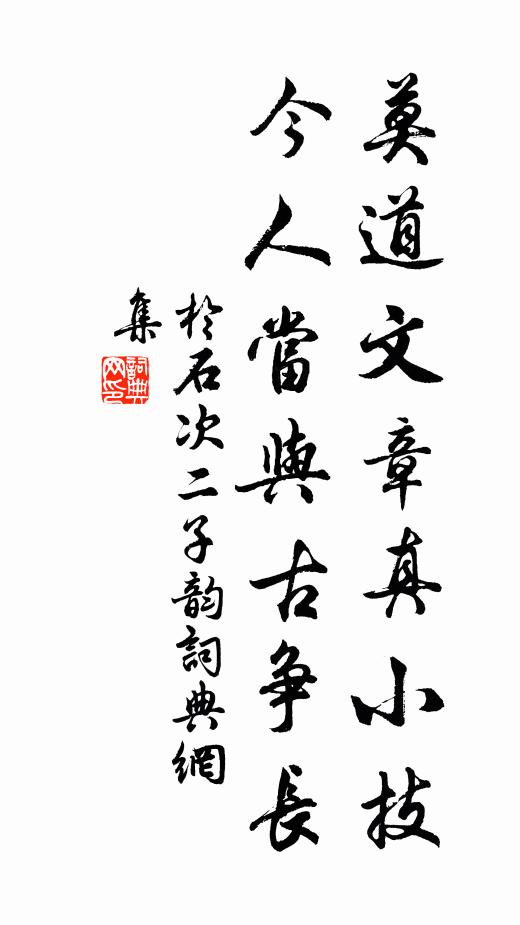 莫道文章真小技
今人當與古爭長
於石次二子韵詞典網
集
詞典網印